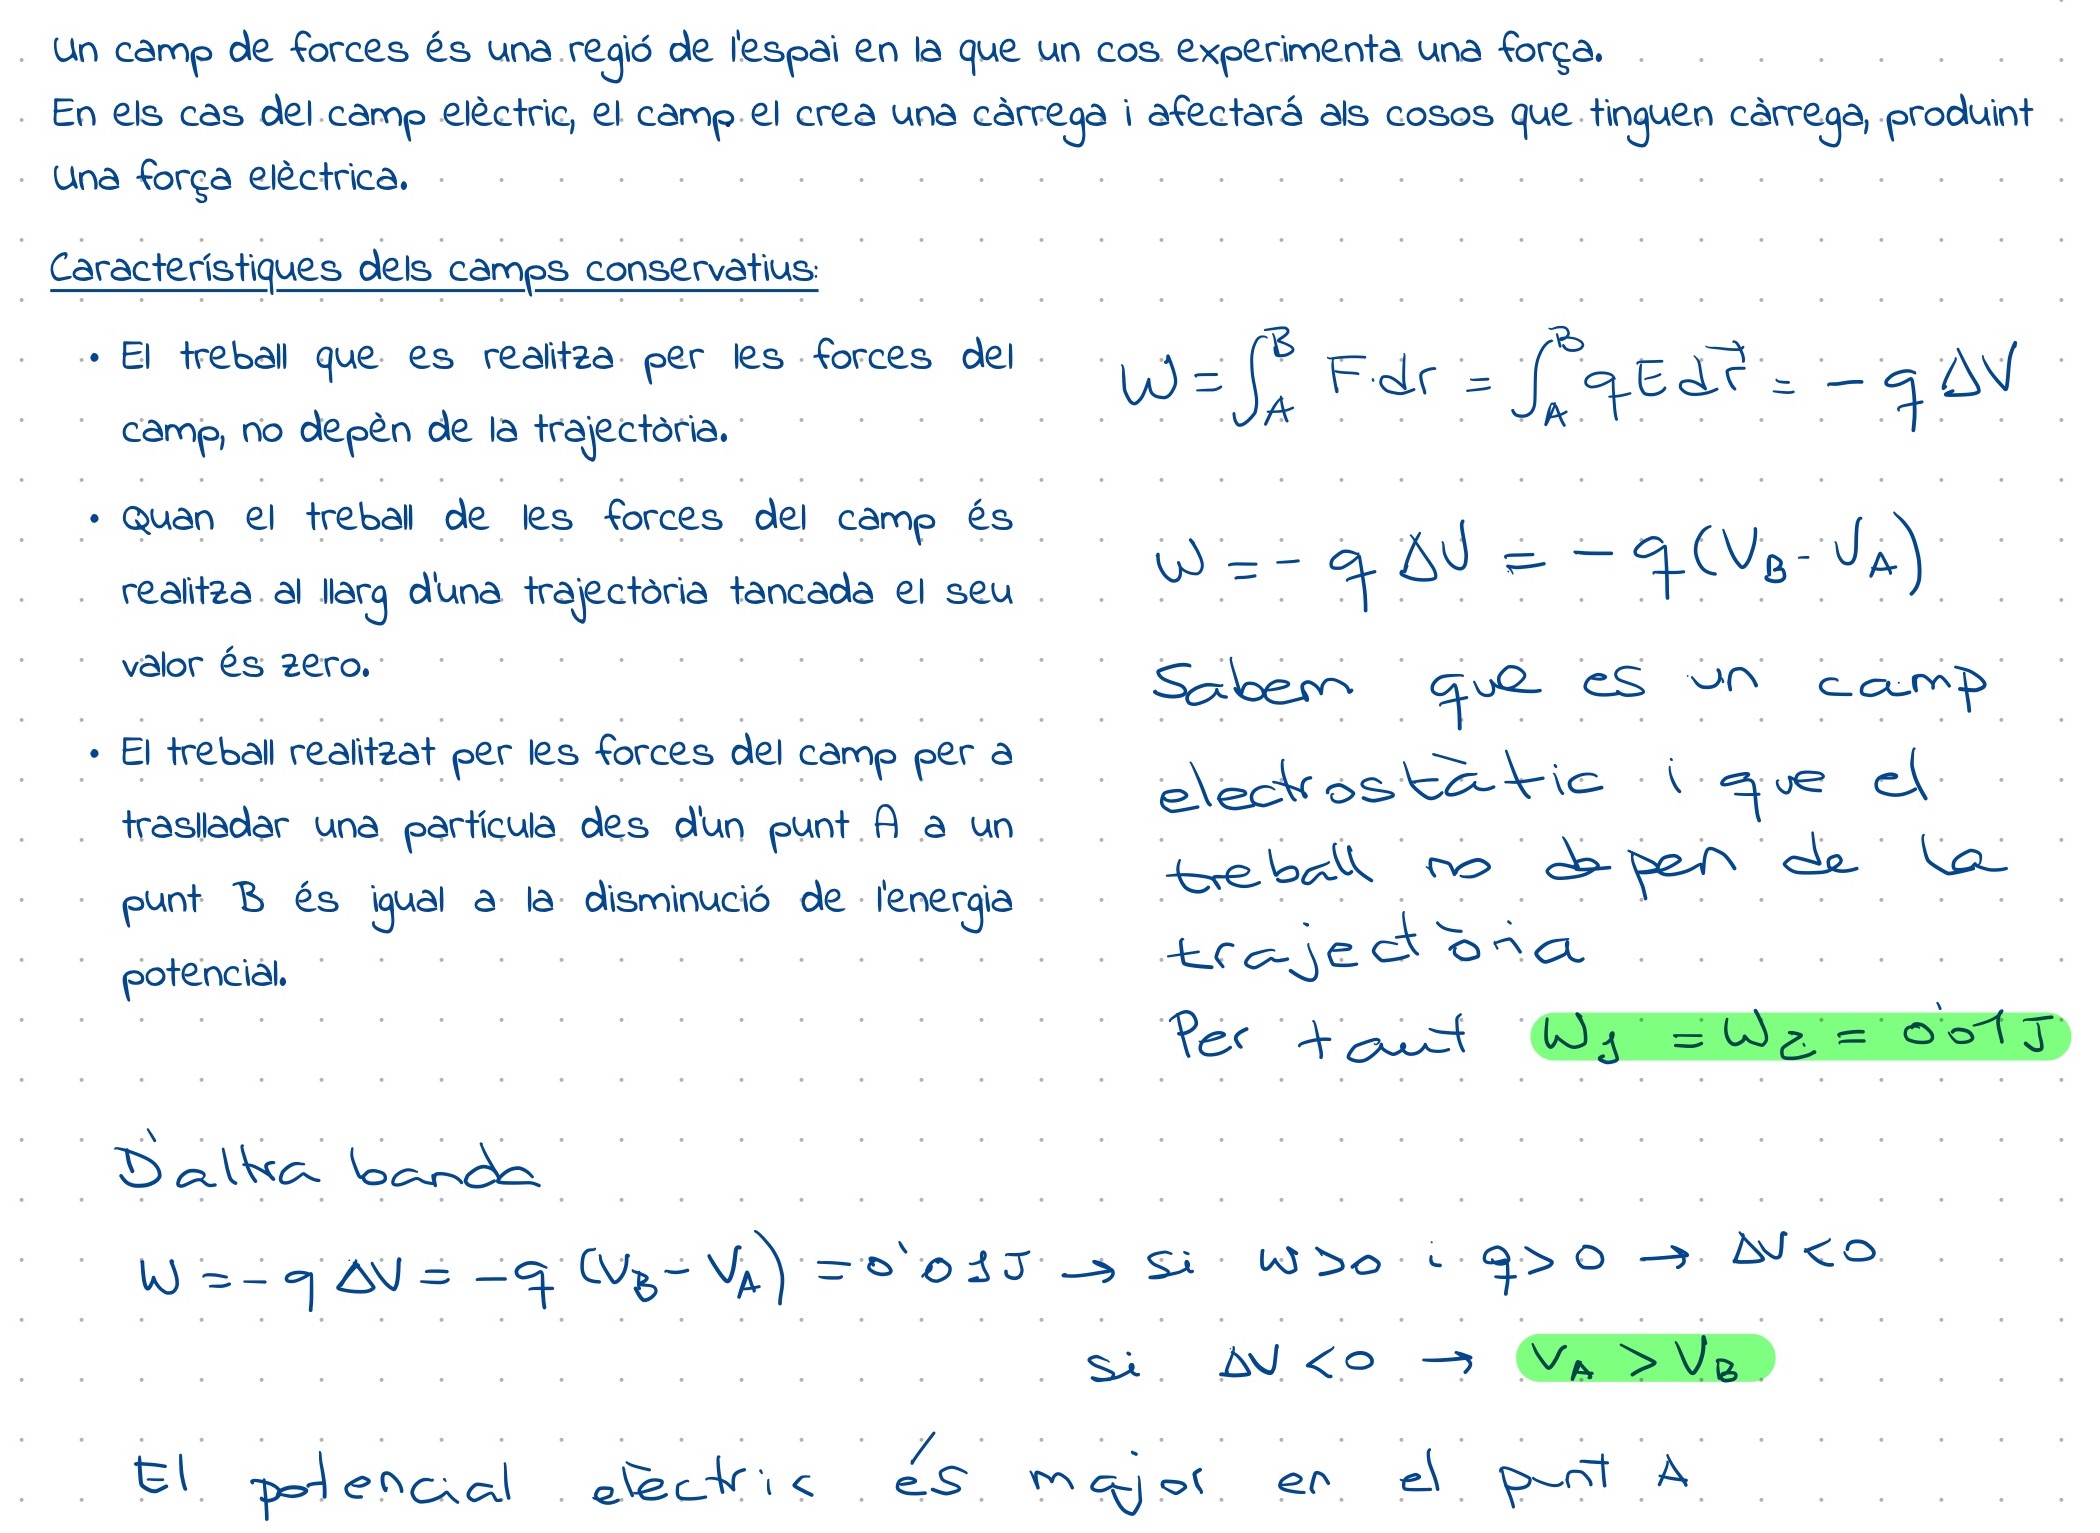 Un camp de forces és una regió de l'espai en la que un cos experimenta una força.
En els cas del camp elèctric, el camp el crea una càrrega i afectará als cosos que tinguen càrrega, produint
una força elèctrica.
Característiques dels camps conservatius:
• El treball que es realitza per les forces del
camp, no depèn de la trajectòria.
• Quan el treball de les forces del camp és
realitza al llarg d'una trajectòria tancada el seu
valor és zero.
• El treball realitzat per les forces del camp per a
traslladar una partícula des d'un punt A a un
punt B és igual a la disminució de l'energia
potencial.
W = ∫_A^B F·dr = ∫_A^B qE dr⃗ = - q ΔV
W = - q ΔV = - q (V_B - V_A)
Sabem que es un camp
electrostàtic i que el
treball no depen de la
trajectòria
Per tant W₁ = W₂ = 0'01J
D'altra banda
W = - q ΔV = - q (V_B - V_A) = 0'01J → si W>0 i q>0 → ΔV<0
si ΔV<0 → V_A > V_B
El potencial elèctric és major en el punt A